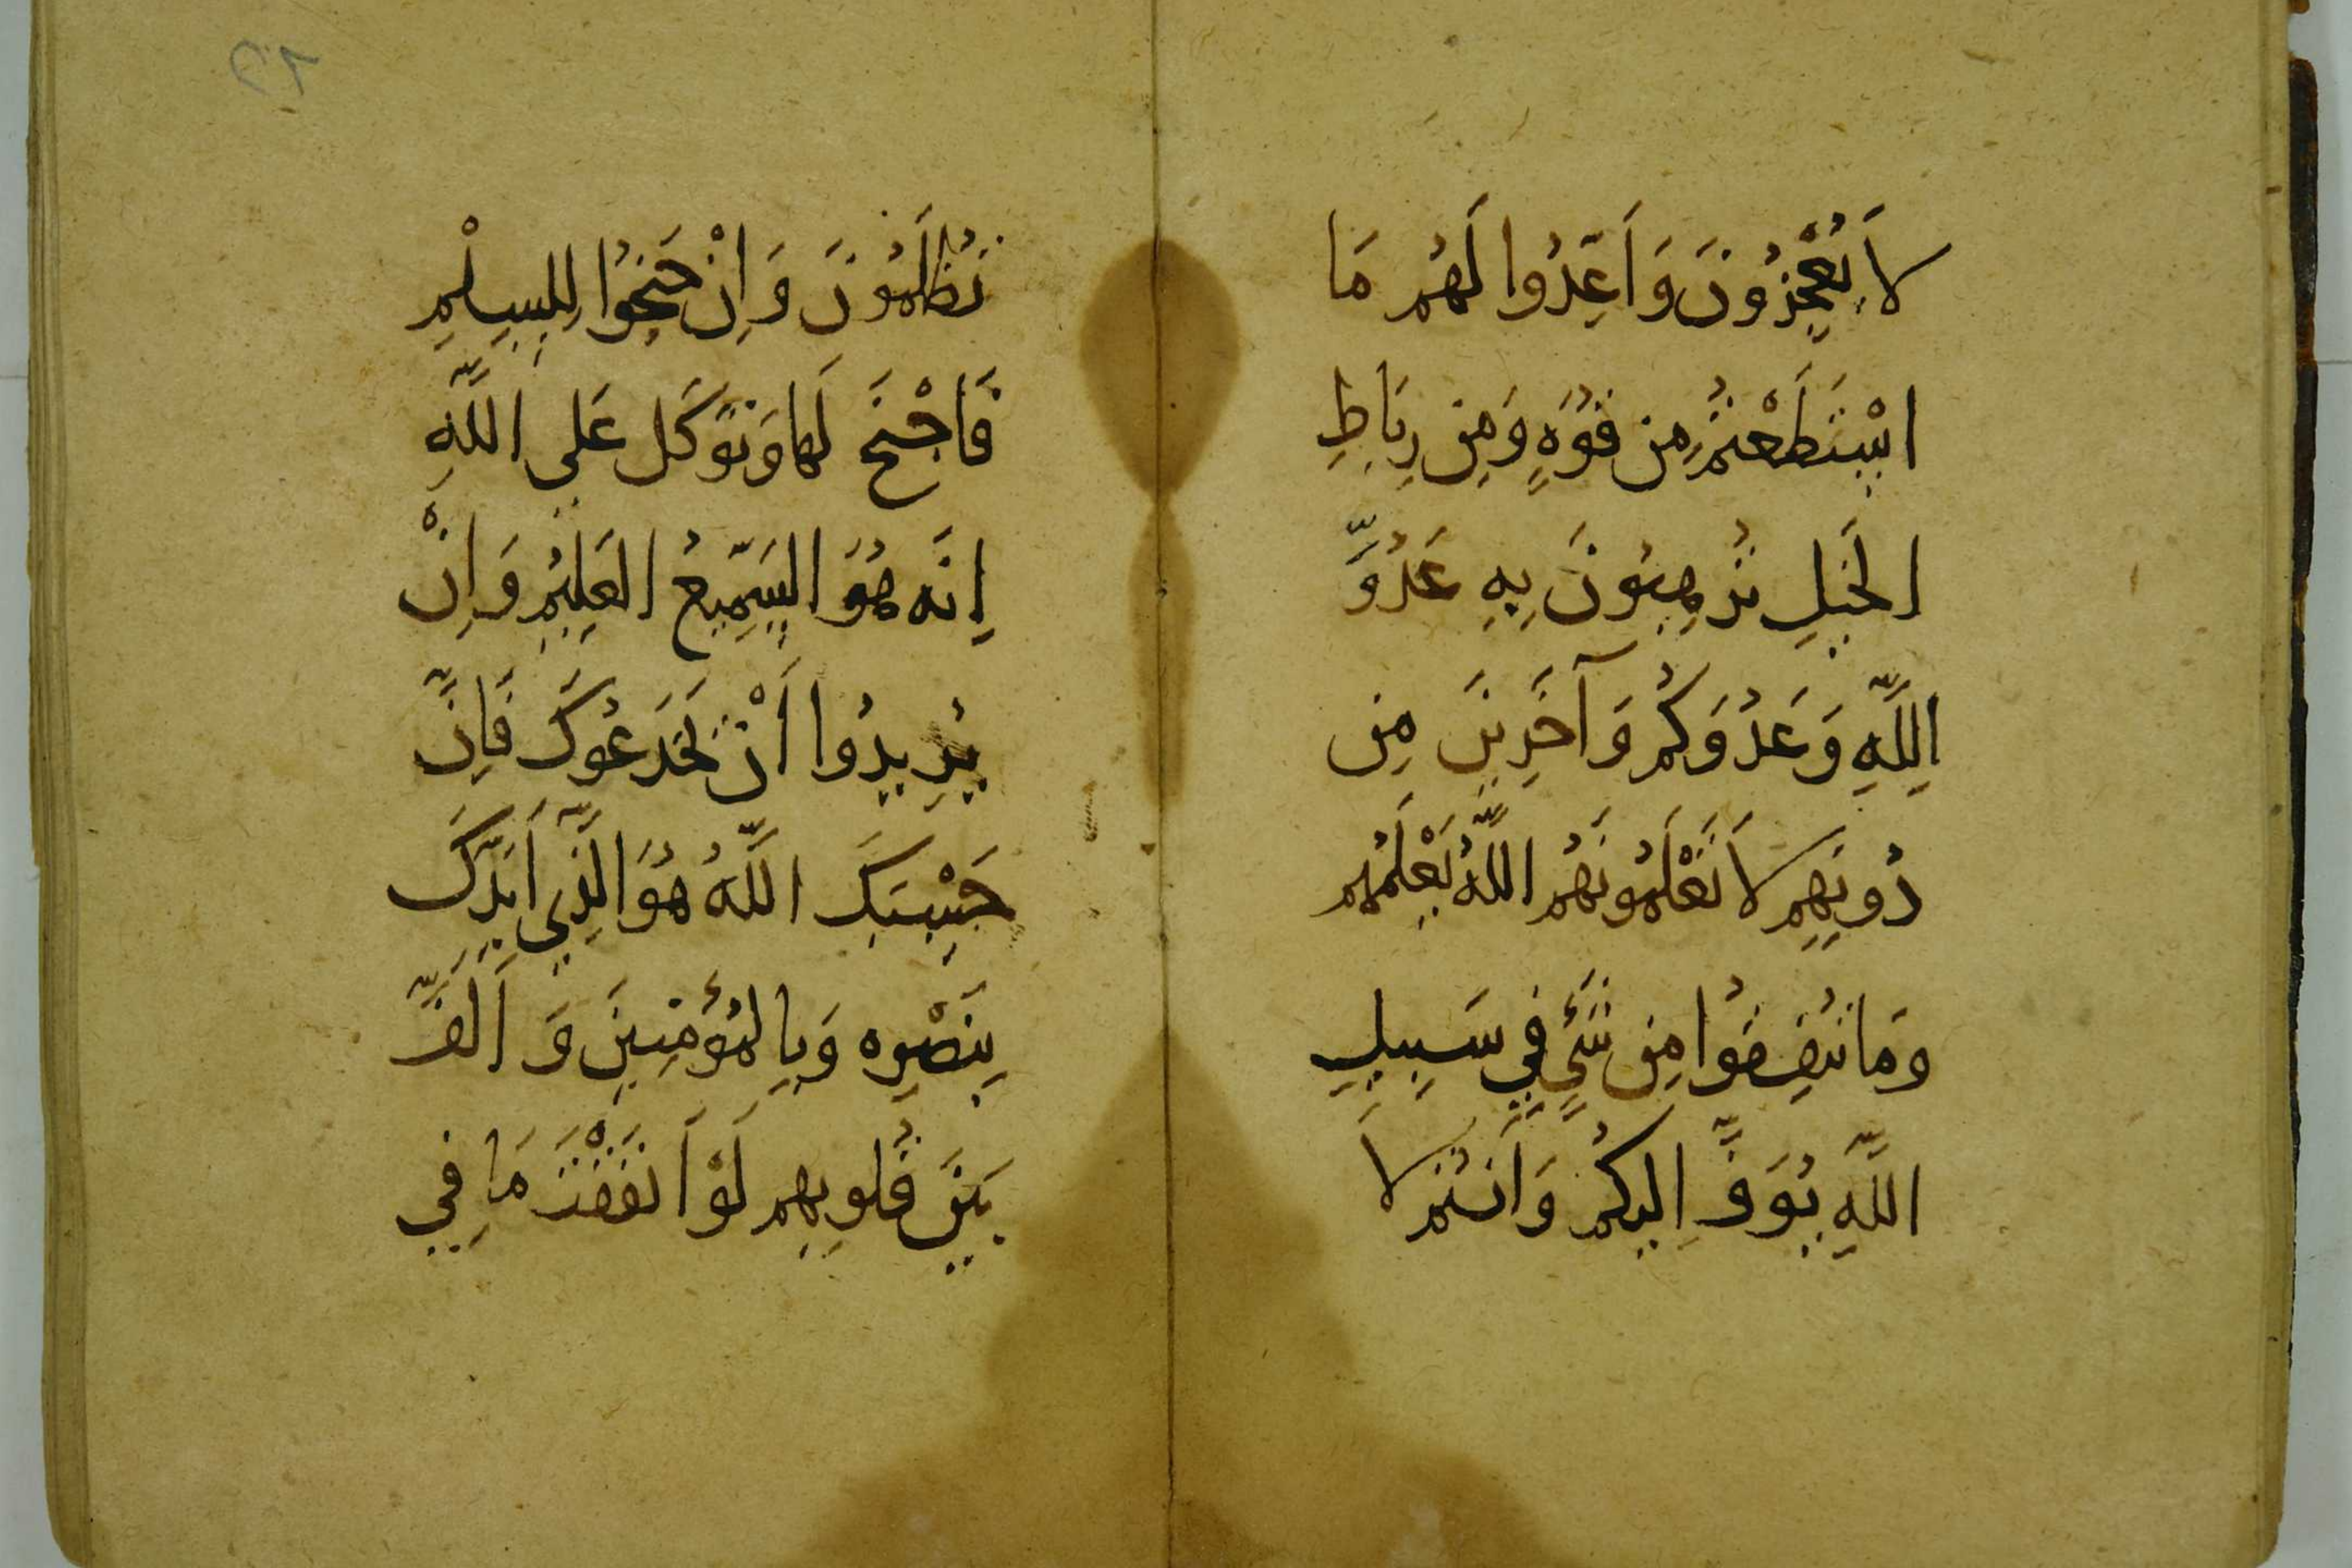 لَا يُعْجِزُونَ وَاَعِدُّوا لَهُم مَا
اسْتَطَعْتُم مِن قُوَّةٍ وَمِن رِبَاطِ
الخَيلِ تُرهِبُونَ بِهِ عَدُوَّ
اللَّهِ وَعَدُوَكُم وَآخَرِينَ مِن
دُونِهِم لَا تَعْلَمُونَهُم اللَّهُ يَعْلَمُهُم
وَمَا تُنفِقُوا مِن شَيٍْ فِي سَبِيلِ
اللَّهِ يُوَفَّ اِليكُم وَاَنتُم لَا
تُظلَمُونَ وَاِنْ جَنَحُوا لِلسِلْمِ
فَاجْنَح لَهَا وَتَوَكَل عَلي اللَّهِ
اِنَّه هُوَ السَّمِيعُ العَلِيُم وَاِنْ
يُرِيدُوا اَنْ يَخدَعُوكَ فَاِنَّ
حَسْبَكَ اللَّهُ هُوَ الَّذِي اَيَّدَكَ
بِنَصْرِه وَبِالمُؤمِنِينَ وَاَلَّفَ
بَينَ قُلُوبِهِم لَوْ اَنفَقْتَ مَا فِي